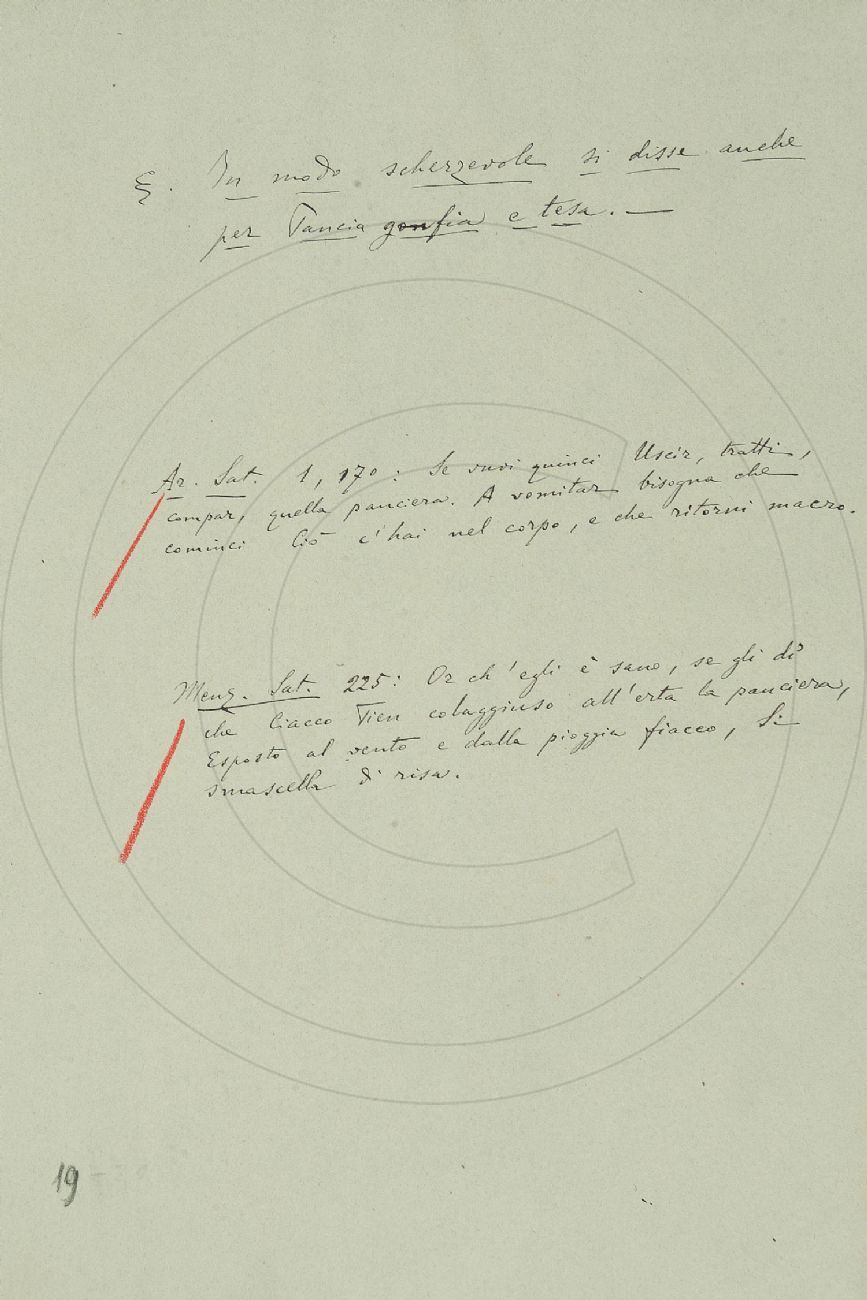 §. In modo scherzevole si disse anche
per Pancia gonfia e tesa. —
Ar. Sat. 1, 170: Se vuoi quinci Uscir, tratti,
compar, quella panciera. A vomitar bisogna che
cominci Ciò c'hai nel corpo, e che ritorni macro.
Menz. Sat. 225: Or ch'egli è sano, se gli dì
che Ciacco Tien colaggiuso all'erta la panciera,
Esposto al vento e dalla pioggia fiacco, Si
smascella di risa.
19